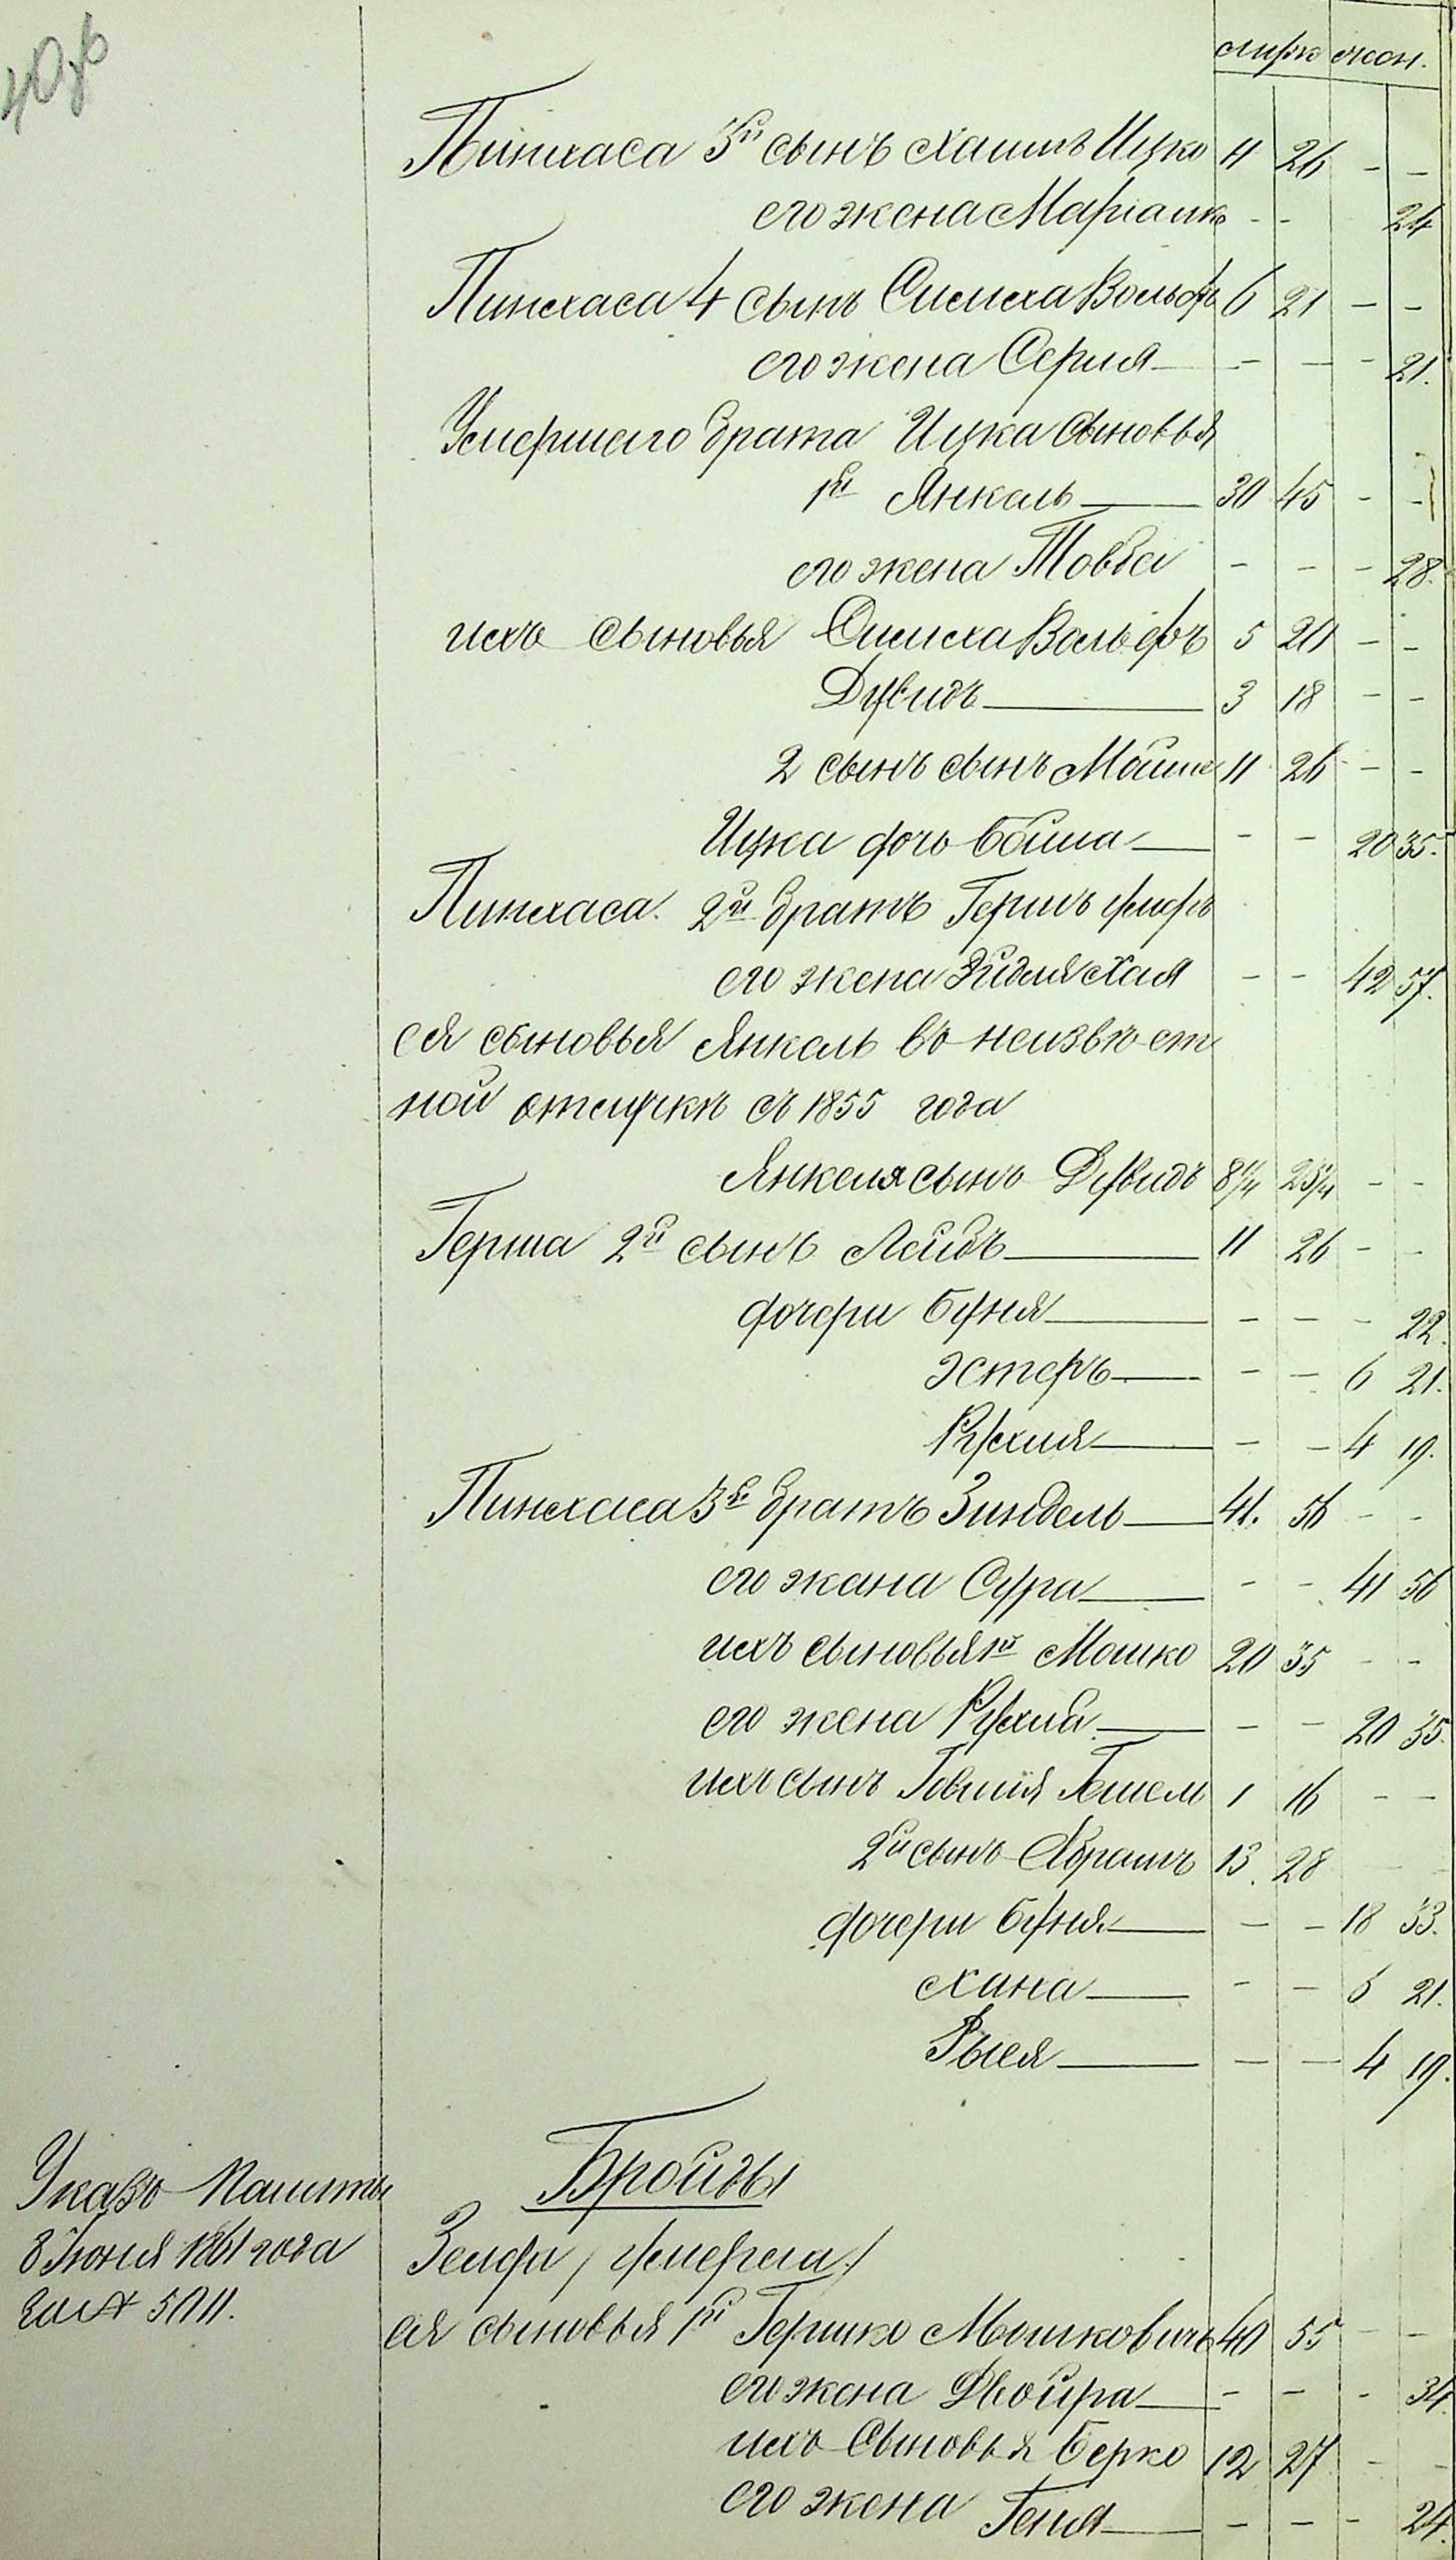 40об
мужс жен.
Пинхаса 3й сынъ Хаимъ Ицко 11 26 - -
его жена Маріамка - - 24
Пинхаса 4 сынъ Симха Вольфъ 6 21 - -
его жена Серля - - - 21.
Умершаго брата Ицка сыновья
1й Янкель 30 45 - -
его жена Товба - - - 28.
ихъ сыновья Симха Вольфъ 5 20 - -
Дувидъ 3 18 - -
2 сынъ сынъ Мойше 11 26 - -
Ицка дочь Бейла - - 20 35.
Пинхаса 2й братъ Гершъ умеръ
его жена Эйдля Хая - - 42 57.
ея сыновья Янкель въ неизвѣст
ной отлучкѣ съ 1855 года
Янкеля сынъ Дувидъ 8¼ 23¼ - -
Герша 2й сынъ Лейбъ 11 26 - -
дочери Буня - - - 22.
Эстеръ - - 6 21.
Рухля - - 4 19.
Пинхаса 3й братъ Зиндель 41. 56 - -
его жена Сура - - 41 56
ихъ сыновья 1й Мошко 20 35 - -
его жена Рухля - - 20 35.
ихъ сынъ Говшія Гешель 1 16 - -
2й сынъ Абрамъ 13. 28
дочери Буня - - 18 33.
Хана - - 6 21.
Рыся - - 4 19.
Бройды
Указъ Палаты
8 Іюня 1861 года
за № 5011.
Зельда /умерла/
ея сыновья 1й Гершко Мошковичъ 40 55 - -
его жена Двойра - - - 34.
ихъ сыновья Берко 12 27 - -
его жена Геня - - - 24.